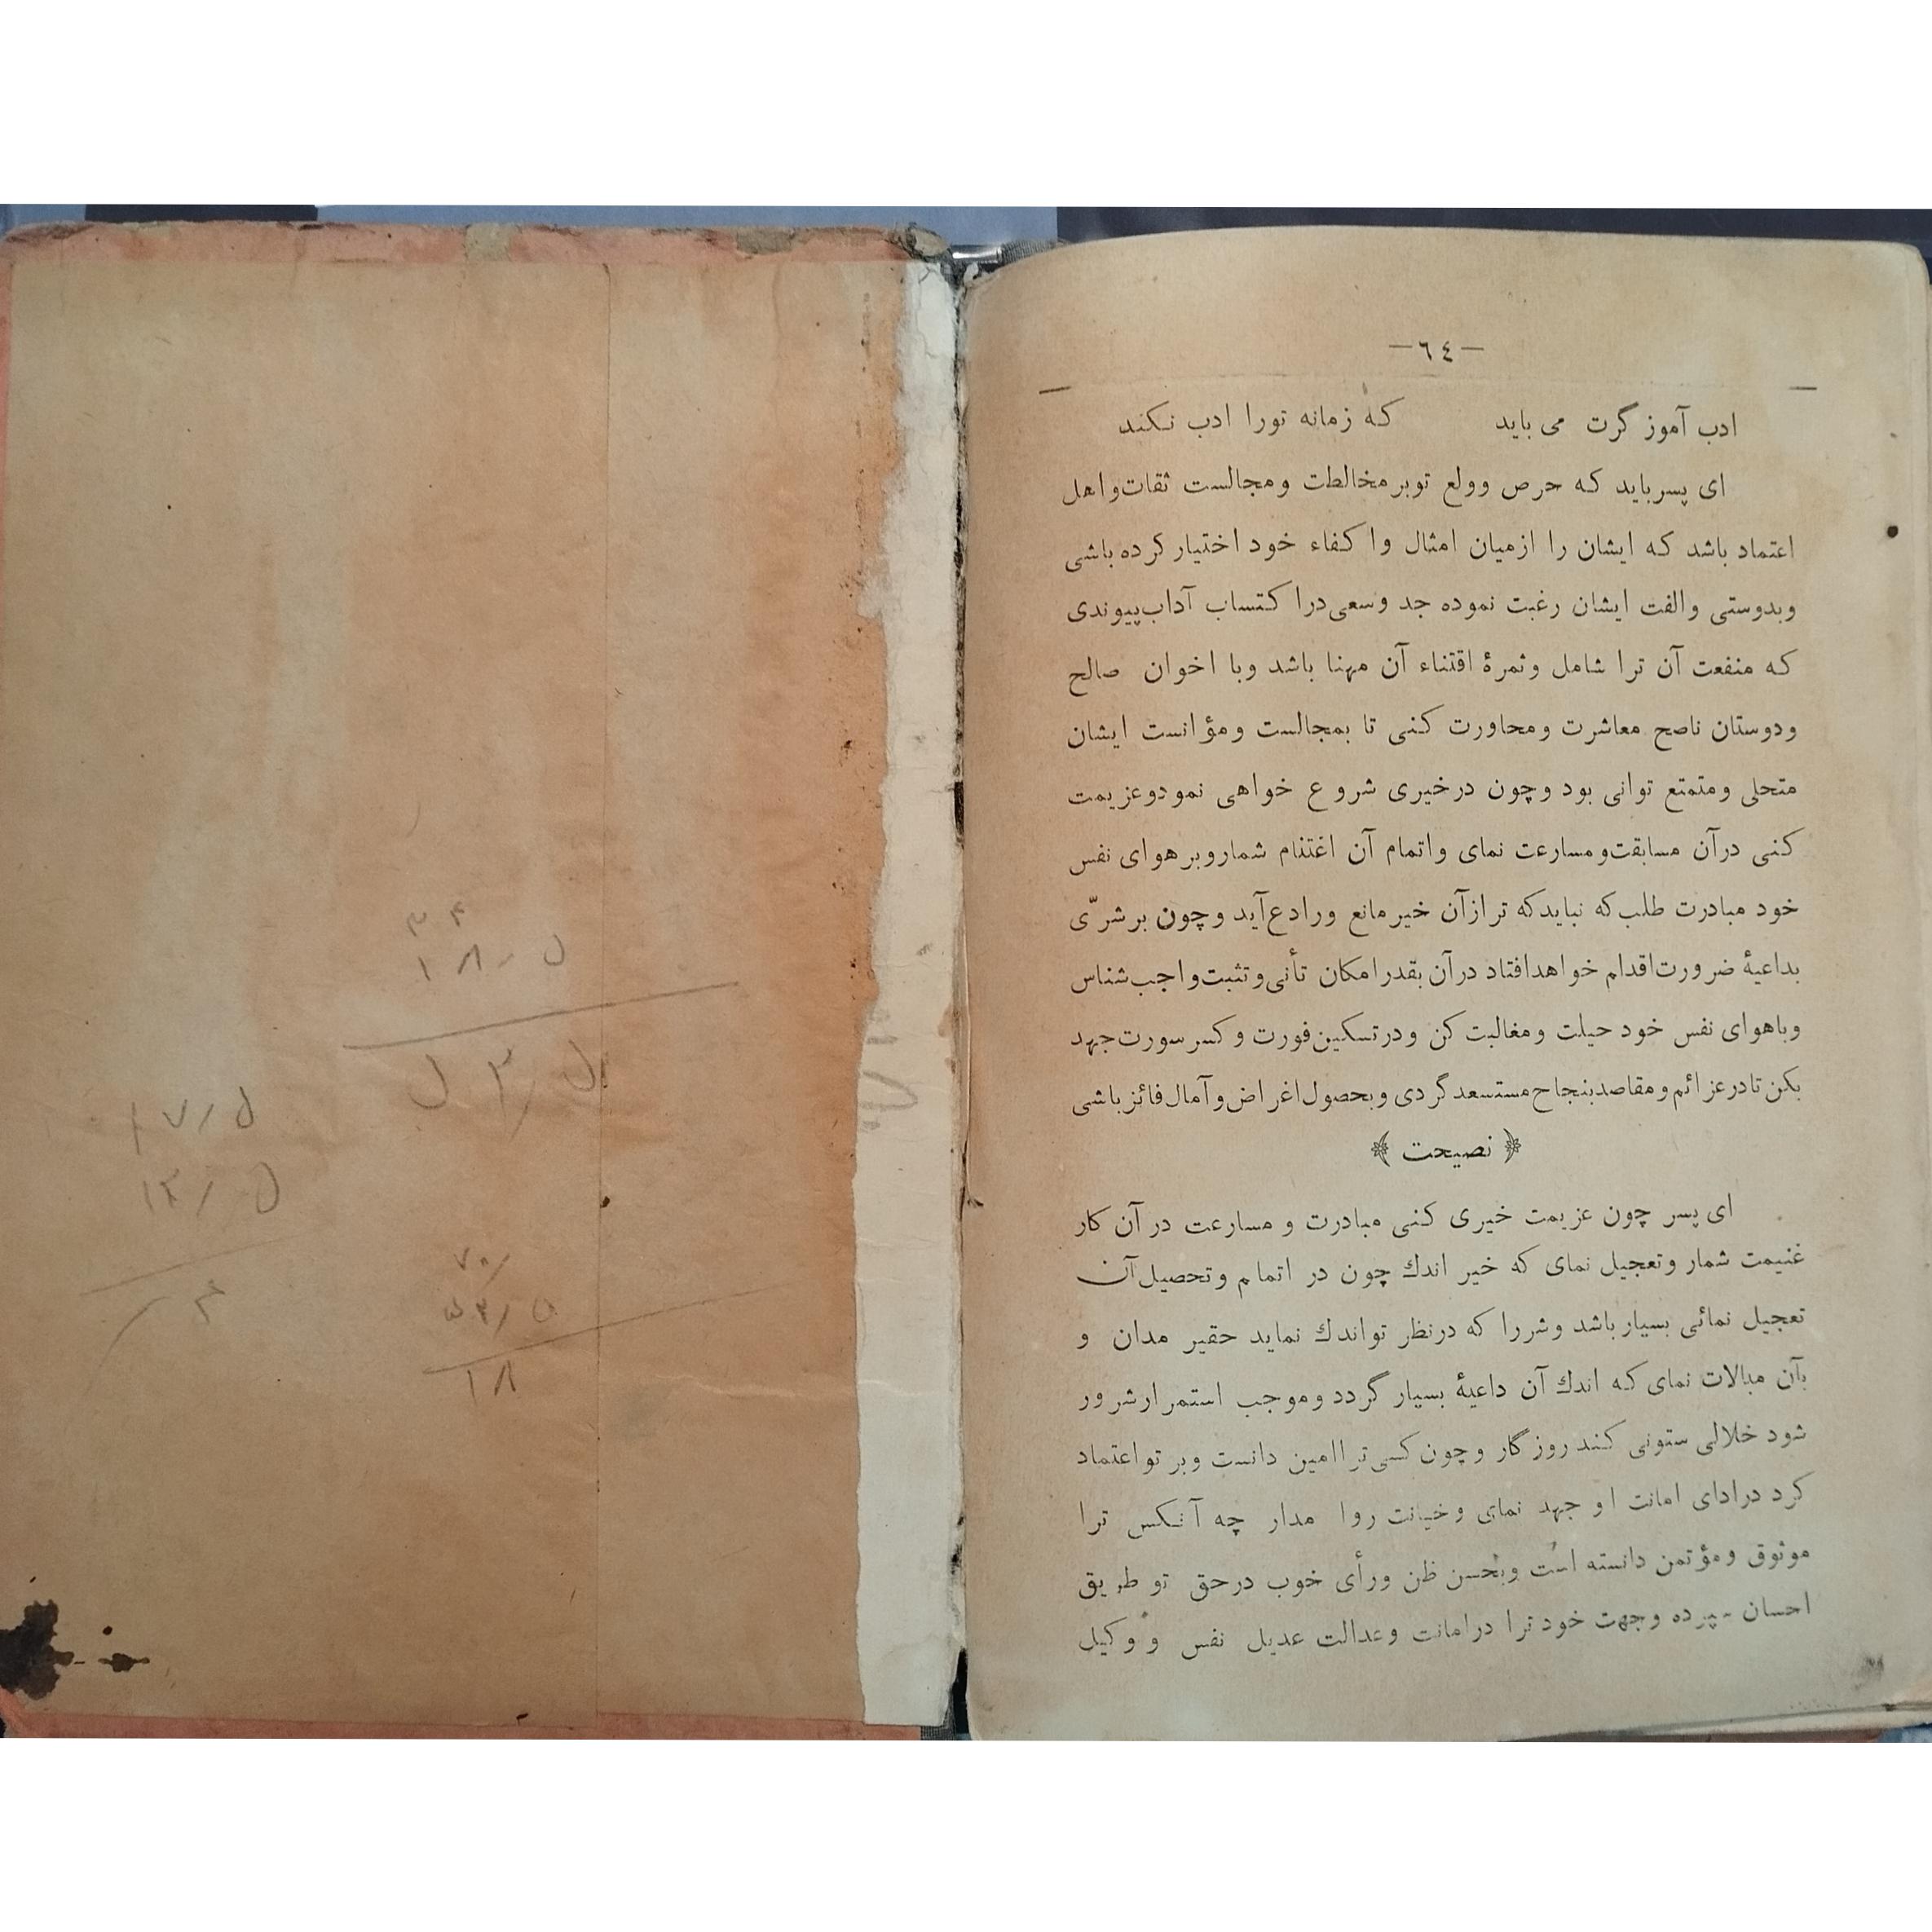 —٦٤—
ادب آموز گرت می باید که زمانه تورا ادب نکند
ای پسر باید که حرص وولع توبر مخالطت ومجالست ثقات واهل
اعتماد باشد که ایشان را ازمیان امثال واکفاء خود اختیار کرده باشی
وبدوستی والفت ایشان رغبت نموده جد وسعی دراکتساب آداب پیوندی
که منفعت آن ترا شامل وثمرهٔ اقتناء آن مهنا باشد وبا اخوان صالح
ودوستان ناصح معاشرت ومحاورت کنی تا بمجالست ومؤانست ایشان
متحلی ومتمتع توانی بود وچون درخیری شروع خواهی نمودوعزیمت
کنی درآن مسابقت ومسارعت نمای واتمام آن اغتنام شماروبر هوای نفس
خود مبادرت طلب که نباید که ترازآن خیر مانع ورادع آید وچون بر شرّی
بداعیهٔ ضرورت اقدام خواهدافتاد درآن بقدر امکان تأنی وتثبت واجب شناس
وباهوای نفس خود حیلت ومغالبت کن ودرتسکین فورت وکسر سورت جهد
بکن تادرعزائم ومقاصد بنجاح مستسعد گردی وبحصول اغراض وآمال فائز باشی
﴿ نصیحت ﴾
ای پسر چون عزیمت خیری کنی مبادرت و مسارعت در آن کار
غنیمت شمار وتعجیل نمای که خیر اندك چون در اتمام وتحصیل آن
تعجیل نمائی بسیار باشد وشررا که درنظر تواندك نماید حقیر مدان و
بآن مبالات نمای که اندك آن داعیهٔ بسیار گردد وموجب استمرار شرور
شود خلالی ستونی کند روزگار وچون کسی تراامین دانست وبر تواعتماد
کرد درادای امانت او جهد نمای وخیانت روا مدار چه آنکس ترا
موثوق ومؤتمن دانسته است وبحسن ظن ورأی خوب درحق تو طریق
احسان سپرده وجهت خود ترا درامانت وعدالت عدیل نفس و وکیل
۱۸